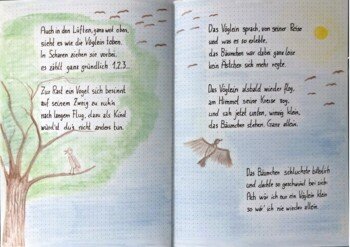 Auch in den Lüften, ganz weit oben,
sieht es wie die Vöglein toben.
In Scharen ziehen sie vorbei,
es zählt ganz gründlich 1,2,3...
Zur Rast ein Vogel sich besinnt
auf seinem Zweig zu ruh'n
nach langem Flug, dass als Kind
würd'st du's nicht anders tun.
Das Vöglein sprach, von seiner Reise
und was es so erlebte,
das Bäumchen war dabei ganz leise
kein Ästchen sich mehr regte.
Das Vöglein alsbald wieder flog,
am Himmel seine Kreise zog.
und sah jetzt unten, winzig klein,
das Bäumchen stehen. Ganz allein.
Das Bäumchen schluchzte bitterlich
und dachte so geschwind bei sich
Ach wär' ich nur ein Vöglein klein
so wär' ich nie wieder allein.